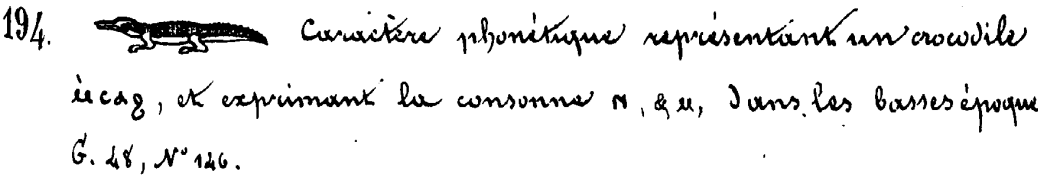 194. Caractère phonétique représentant un crocodile
ⲙ̀ⲥⲁϩ, et exprimant la consonne ⲛ, & ⲙ, dans les basses époque
G. 48, N° 146.